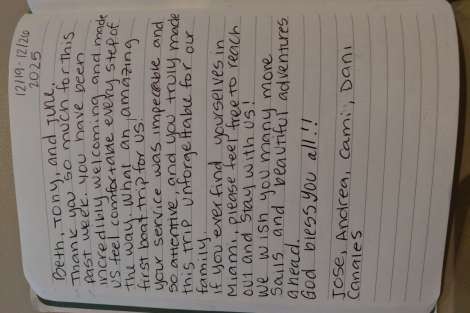 12/19-12/26
2025
Beth, Tony, and June,
Thank you so much for this
past week. you have been
incredibly welcoming and made
us feel comfortable every step of
the way. What an amazing
first boat trip for us!
your service was impeccable and
so attentive, and you truly made
this trip unforgettable for our
family.
if you ever find yourselves in
Miami, please feel free to reach
out and stay with us!
we wish you many more
sails and beautiful adventures
ahead.
God bless you all!!
Jose, Andrea, Cami, Dani
Canales